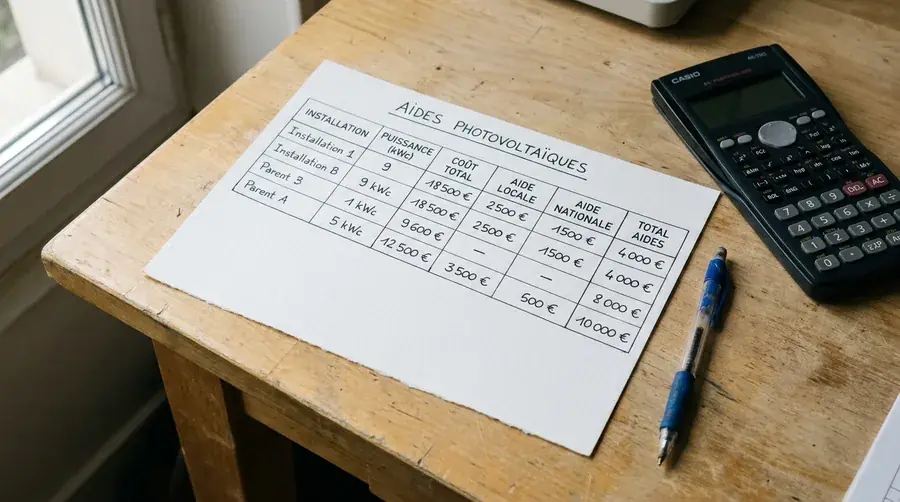 AÏDES PHOTOVOLTAÏQUES
INSTALLATION PUISSANCE (kWc) COÛT TOTAL AIDE LOCALE AIDE NATIONALE TOTAL AIDES
Installation 1 9 18 500 € 2500 € 1500 € 4 000 €
Installation B 9 kWc 18 500 € 2500 € 1500 € 4 000 €
Parent 3 1 kWc 9 600 € — — 8 000 €
Parent A 5 kWc 12 500 € 3 500 € 500 € 10 000 €
CASIO
DEL AC
7 8 9
4 5 6
1 2 3
0 EXP